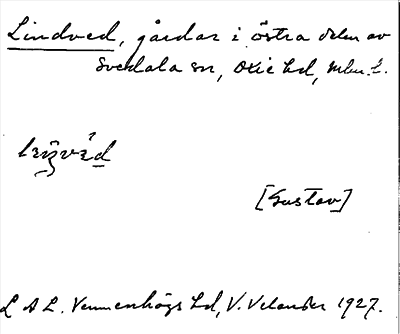 Lindved, gårdar i östra delen av
Svedala sn, Oxie hd, Mbu. l.
[Gustav]
L A L. Vemmenhögs hd, V. Velander 1927.